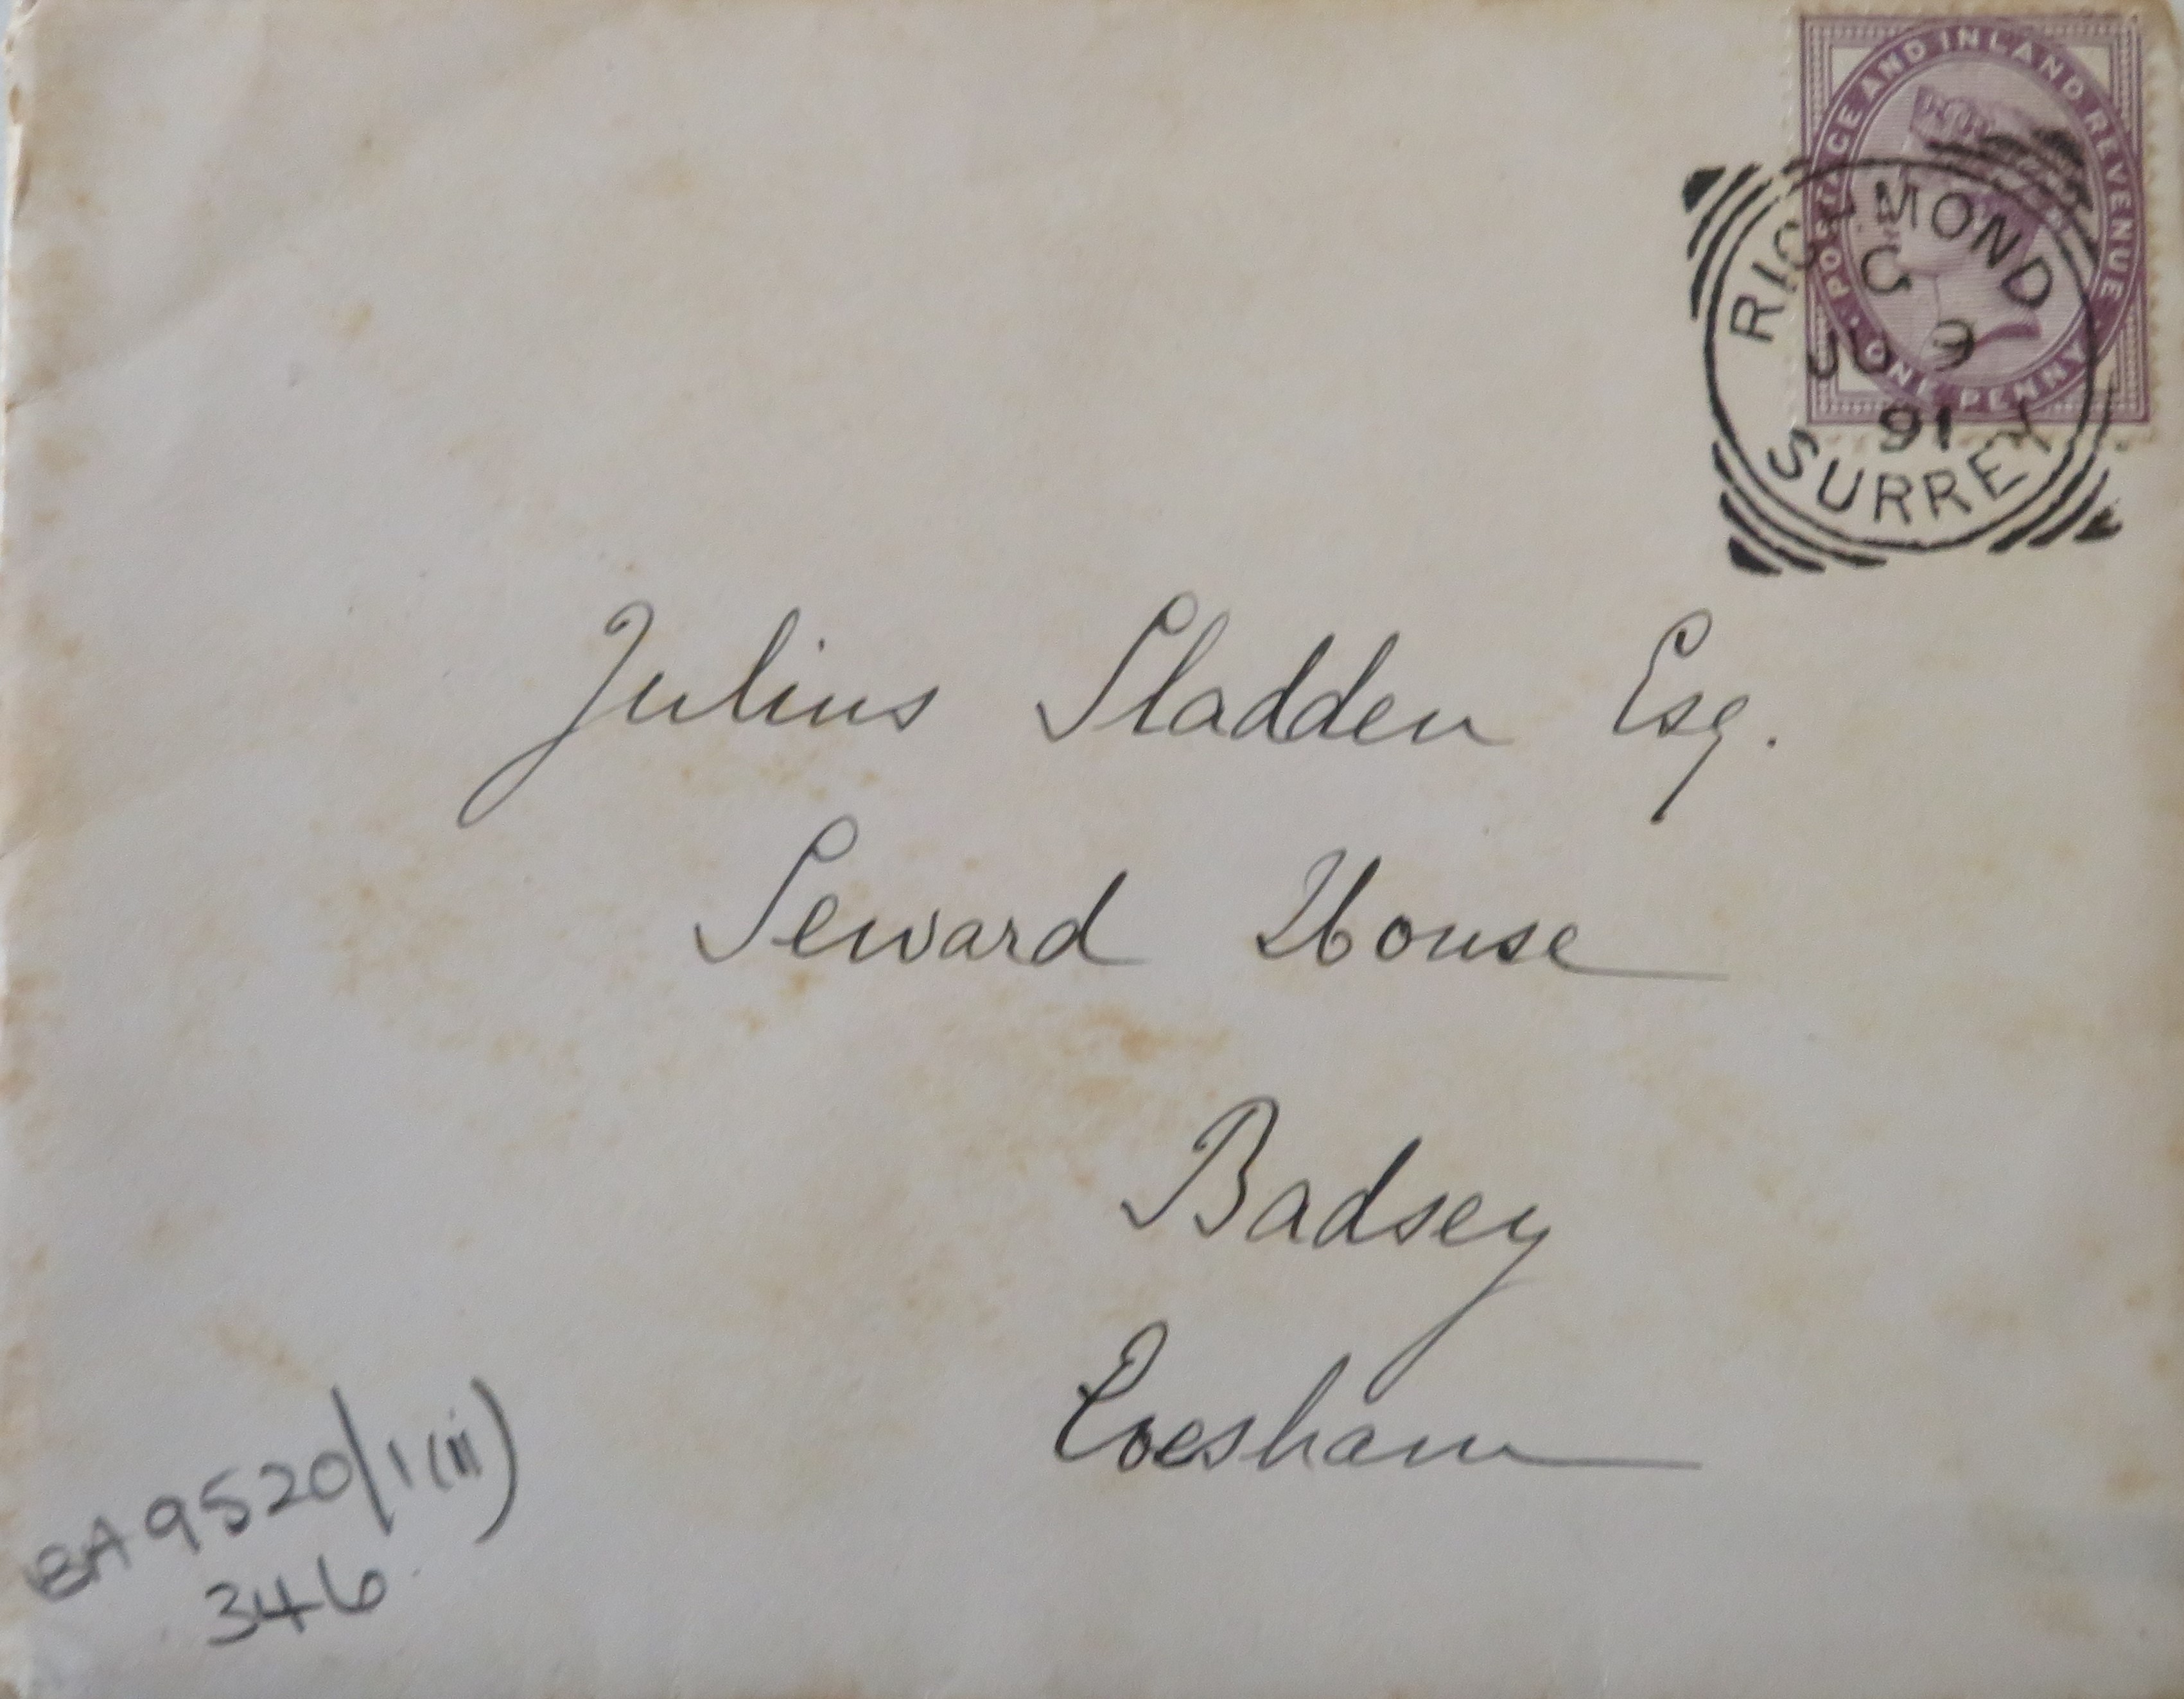 POSTAGE AND INLAND REVENUE
ONE PENNY
RICHMOND
C
9
91
SURREY
Julius Sladden Esq.
Seward House
Badsey
Evesham
BA9520/1(ii)
346